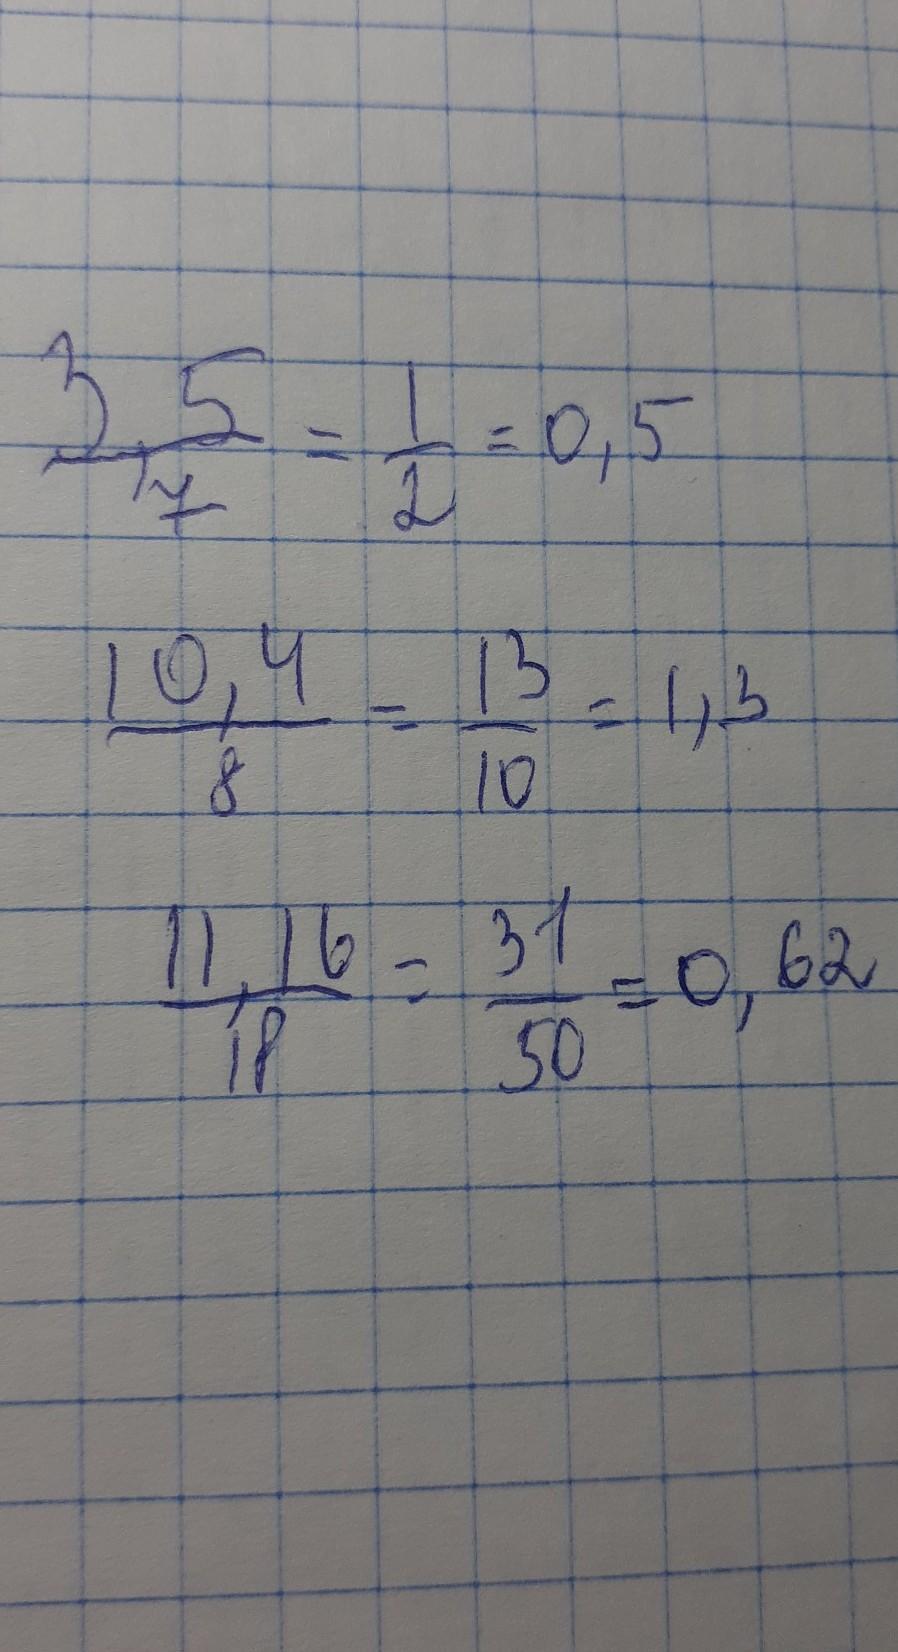 3,5/7 = 1/2 = 0,5
10,4/8 = 13/10 = 1,3
11,16/18 = 31/50 = 0,62